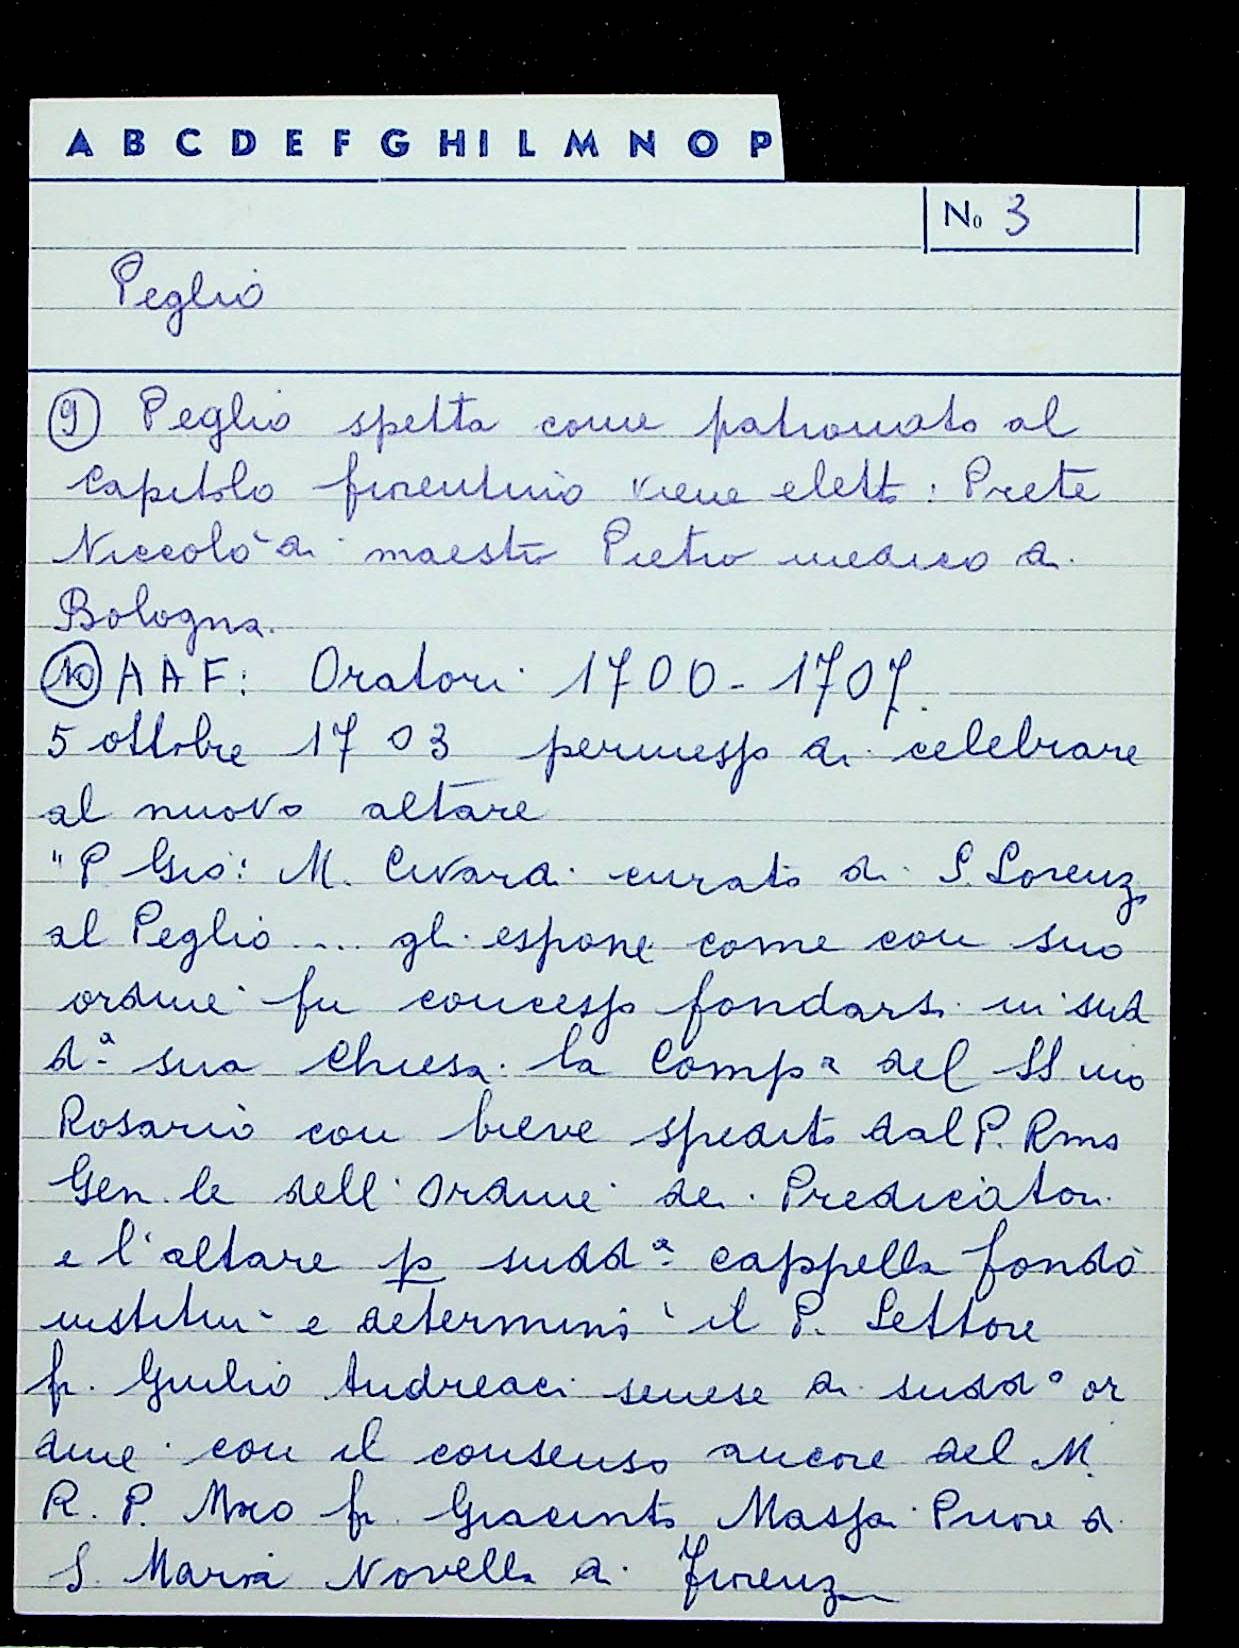 A B C D E F G H I L M N O P
No 3
Peglio
9 Peglio spetta come patronato al
Capitolo fiorentino viene eletto: Prete
Niccolò di maestro Pietro medico di
Bologna.
10 A A F: Oratori 1700-1707.
5 ottobre 1703 permesso di celebrare
al nuovo altare
"P Gio: M. Civardi curato di S. Lorenzo
al Peglio .... gli espone come con suo
ordine fu concesso fondarsi in sud
d.ª sua Chiesa la Comp.ª del SS mo
Rosario con breve spedito dal P. Rmo
Gen.le dell'Ordine dei Predicatori
e l'altare p sudd.ª cappella fondò
instituì e determinò il P. Lettore
fr. Giulio Andreaci senese di sudd.º or
dine con il consenso ancore del M.
R. P. Mro fr. Giacinto Massai Priore di
S. Maria Novella di Firenze